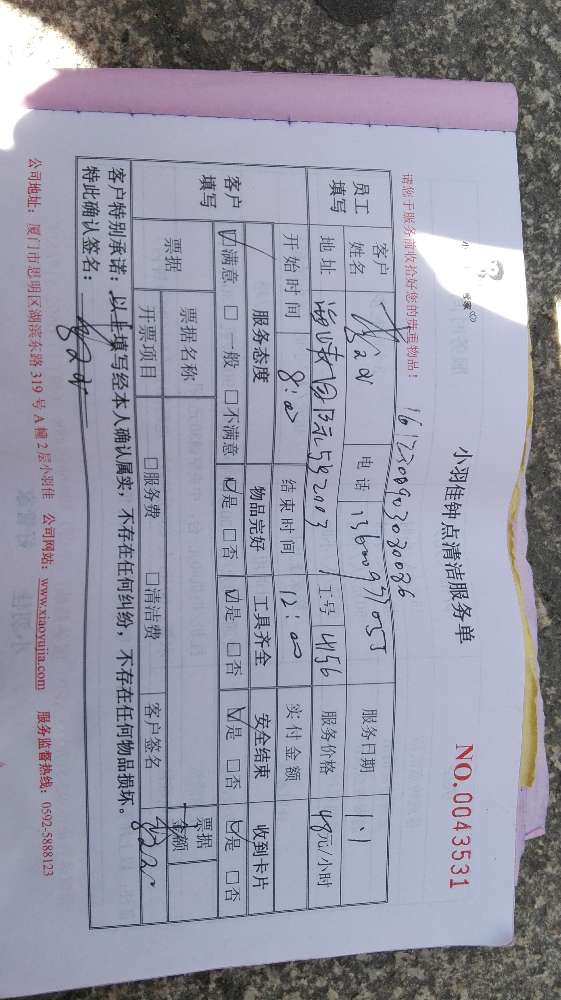 小羽佳钟点清洁服务单
NO.0043531
请您于服务前收拾好您的贵重物品!
1612200903030086
员工填写 客户姓名 电话 13600977055 服务日期 1.1
地址 2003 工号 4156 服务价格 48元/小时
开始时间 8:00 结束时间 12:00 实付金额
客户填写 服务态度 物品完好 工具齐全 安全结束 收到卡片
☑满意 □一般 □不满意 ☑是 □否 ☑是 □否 ☑是 □否 ☑是 □否
票据 票据名称 票据金额
开票项目 □服务费 □清洁费 客户签名
客户特别承诺:以上填写经本人确认属实,不存在任何纠纷,不存在任何物品损坏。
特此确认签名:
公司地址:厦门市思明区湖滨东路319号A幢2层小羽佳 公司网站:www.xiaoyujia.com 服务监督热线:0592-5888123